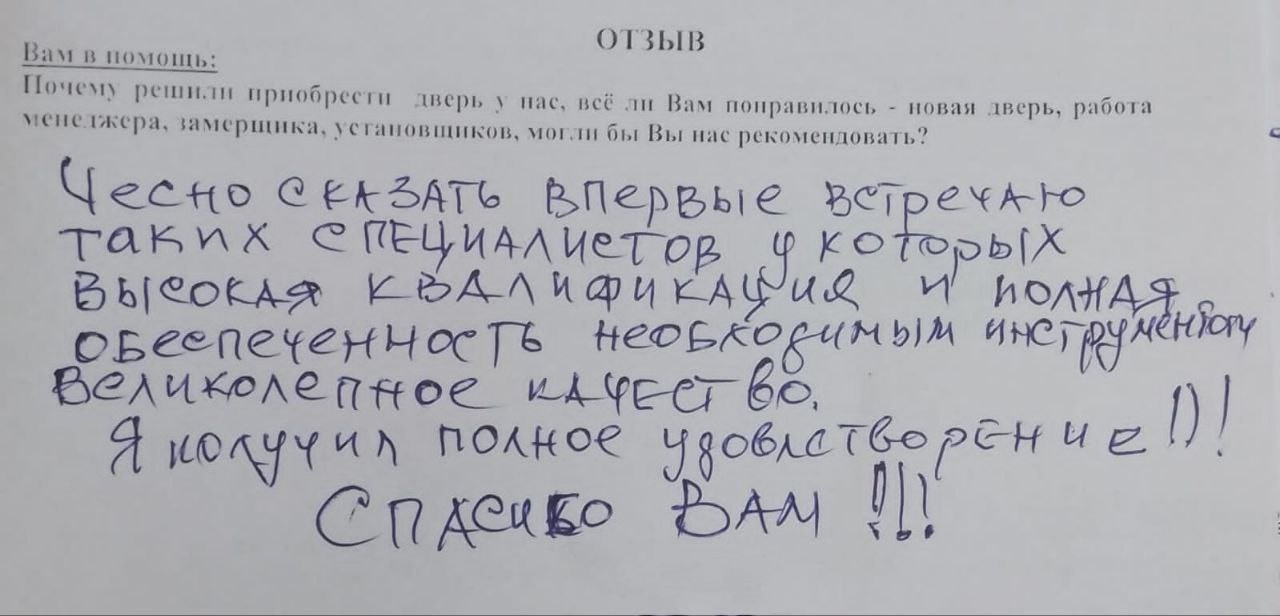 ОТЗЫВ
Вам в помощь:
Почему решили приобрести дверь у нас, всё ли Вам понравилось - новая дверь, работа
менеджера, замерщика, установщиков, могли бы Вы нас рекомендовать?
Чесно сказать впервые встречаю
таких специалистов у которых
высокая квалификация и полная
обеспеченность необходимым инструментом
Великолепное качество.
Я получил полное удовлстворение!!!
Спасибо Вам!!!